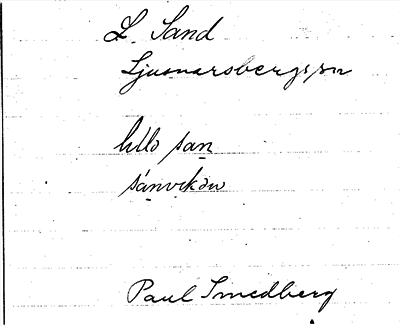 L. Sand
Ljusnarsbergs sn
lillo san
sánvikən
Paul Smedberg